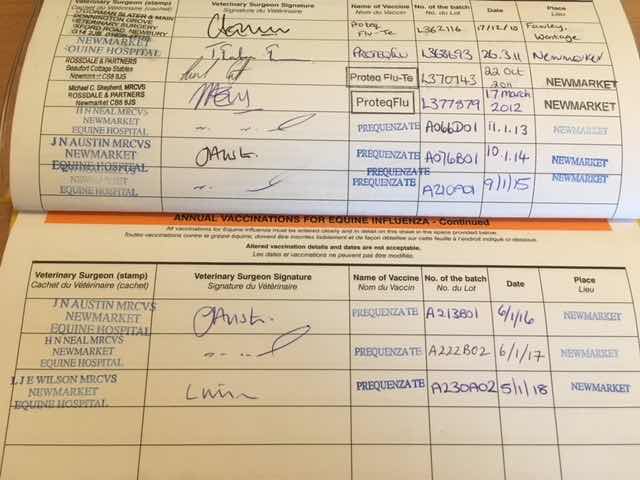 THORMAN SLATER & MAIN
DONNINGTON GROVE
VETERINARY SURGERY
OXFORD ROAD, NEWBURY
Veterinary Surgeon Signature
Signature du Vétérinaire
Name of Vaccine
Nom du Vaccin
No. of the batch
No. du Lot
Date
Place
Lieu
Proteq Flu-Te L362116 17/12/10 Fawley, Wantage
NEWMARKET
EQUINE HOSPITAL
PROTEQFLU L368693 26.3.11 Newmarket
ROSSDALE & PARTNERS
Beaufort Cottage Stables
Newmarket CB8 8JS
Proteq Flu-Te L370743 22 Oct 2011 NEWMARKET
Michael C. Shepherd, MRCVS
ROSSDALE & PARTNERS
Newmarket CB8 8JS
ProteqFlu L377879 17 March 2012 NEWMARKET
H N NEAL MRCVS
NEWMARKET
EQUINE HOSPITAL
PREQUENZA TE A066D01 11.1.13 NEWMARKET
J N AUSTIN MRCVS
NEWMARKET
EQUINE HOSPITAL
PREQUENZA TE A076B01 10.1.14 NEWMARKET
PREQUENZA TE
NEWMARKET
EQUINE HOSPITAL
PREQUENZA TE 9/1/15 NEWMARKET
ANNUAL VACCINATIONS FOR EQUINE INFLUENZA - Continued
All vaccinations for Equine Influenza must be entered clearly and in detail on this sheet in the space provided below.
Toutes vaccinations contre la grippe équine, doivent être inscrites lisiblement et de façon détaillée sur cette feuille à l'endroit indiqué ci-dessous.
Altered vaccination details and dates are not acceptable.
Les dates et vaccinations ne peuvent pas être modifiés.
Veterinary Surgeon (stamp)
Cachet du Vétérinaire (cachet)
Veterinary Surgeon Signature
Signature du Vétérinaire
Name of Vaccine
Nom du Vaccin
No. of the batch
No. du Lot
Date
Place
Lieu
J N AUSTIN MRCVS
NEWMARKET
EQUINE HOSPITAL
PREQUENZA TE A213B01 6/1/16 NEWMARKET
H N NEAL MRCVS
NEWMARKET
EQUINE HOSPITAL
PREQUENZA TE A222B02 6/1/17 NEWMARKET
L J E WILSON MRCVS
NEWMARKET
EQUINE HOSPITAL
PREQUENZA TE A230A02 5/1/18 NEWMARKET